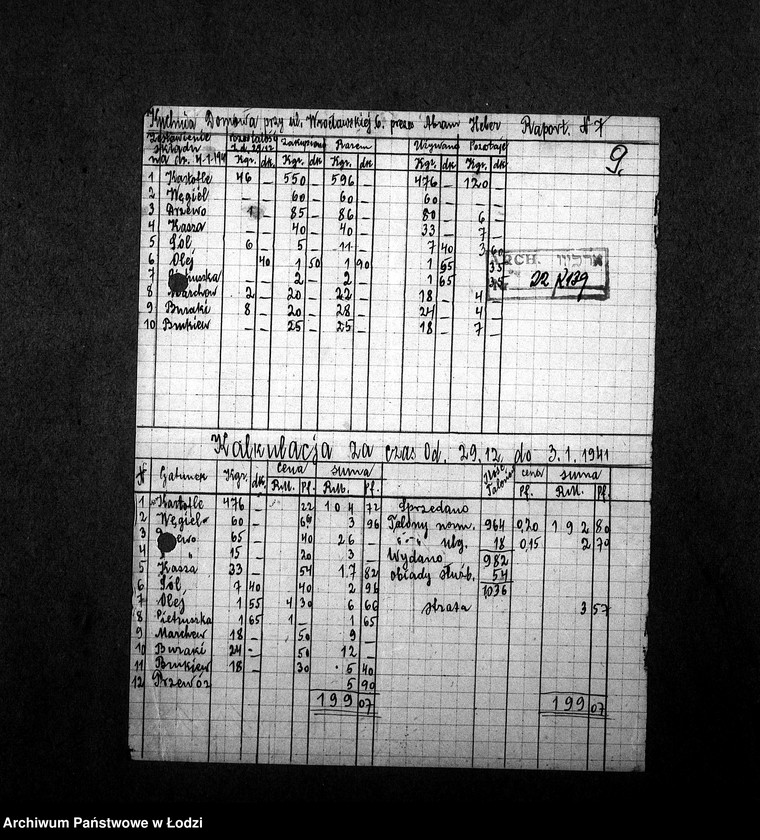 Kuchnia Domowa przy ul. Wrocławskiej 6. przez Abram Heber Raport. N 7
9.
Zestawienie składu na dz. 4.1.194 Pozostałość z d. 29/12 Zakupiono Razem Używano Pozostaje
Kgr. dk Kgr. dk Kgr. dk Kgr. dk Kgr. dk
1 Kartofle 46 _ 550 _ 596 _ 476 _ 120 _
2 Węgiel _ _ 60 _ 60 _ 60 _
3 Drzewo 1 _ 85 _ 86 _ 80 _ 6 _
4 Kasza _ _ 40 _ 40 _ 33 _ 7 _
5 Sól 6 _ 5 _ 11 _ 7 40 3 60
6 Olej 40 1 50 1 90 1 55 35
7 Pietruszka _ _ 2 _ 2 _ 1 65 35
8 Marchew 2 _ 20 _ 22 _ 18 _ 4
9 Buraki 8 _ 20 _ 28 _ 24 _ 4 _
10 Brukiew _ _ 25 _ 25 _ 18 _ 7 _
ARCH. ארכיון
22
Kalkulacja za czas Od. 29.12. do 3.1.1941
N Gatunek Kgr. dk cena suma Ilość Talonów cena suma
RM. Pf. RM. Pf. Pf. RM. Pf.
1 Kartofle 476 _ 22 104 72 Sprzedano
2 Węgiel 60 _ 6 3 96 Talony norm. 964 0,20 192 80
3 ewo 65 40 26 _ " - " ulg. 18 0,15 2 70
4 " 15 20 3 _ Wydano 982
5 Kasza 33 _ 54 17 82 obiady służb. 54
6 Sól 7 40 40 2 96 1036
7 Olej 1 55 4 30 6 66 strata 3 57
8 Pietruszka 1 65 1 _ 1 65
9 Marchew 18 _ 50 9 _
10 Buraki 24 _ 50 12 _
11 Brukiew 18 _ 30 5 40
12 Przewóz 5 90
199 07 199 07
Archiwum Państwowe w Łodzi